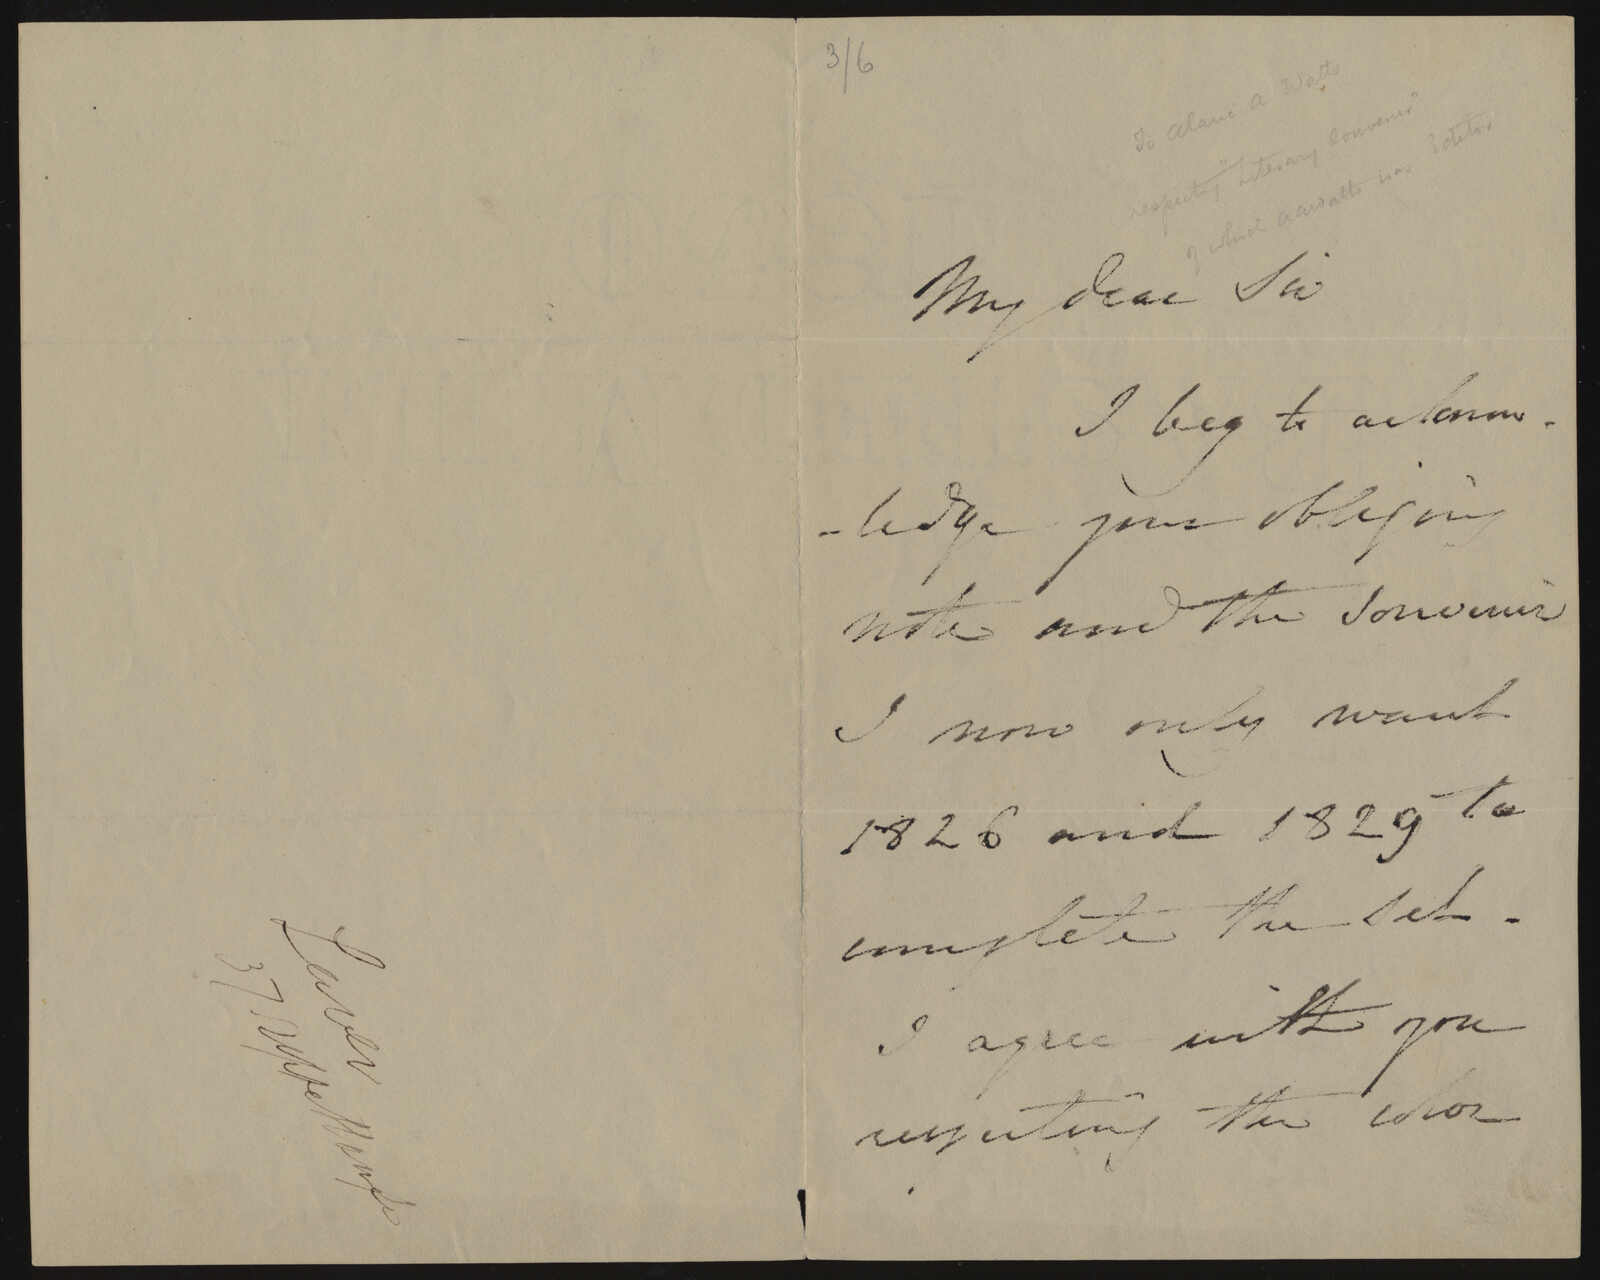 3/6
To Alaric A Watts
respecting "Literary Souvenir"
of which A A Watts was Editor
My dear Sir
I beg to acknow-
-ledge your obliging
note and the Souvenir
I now only want
1826 and 1829 to
complete the set -
I agree with you
respecting the color
37